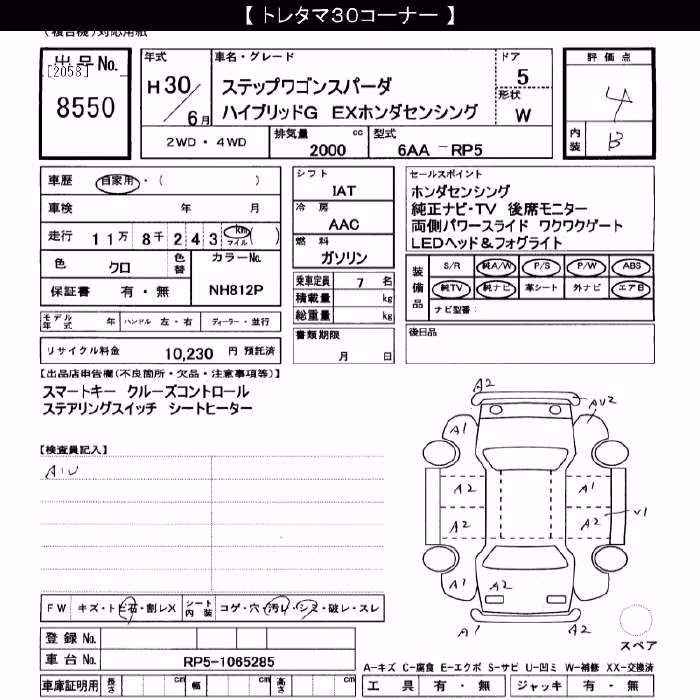 【 トレタマ30コーナー 】
(複合機)対応用紙
出品No.
[2058]
8550
年式
H 30
6月
車名・グレード
ステップワゴンスパーダ
ハイブリッドG EXホンダセンシング
ドア
5
形状
W
評価点
4
内装
B
2WD・4WD
排気量 cc
2000
型式
6AA -RP5
車歴 自家用・( )
車検 年 月
走行 11万 8千 2 4 3 km マイル ( )
色 クロ 色替 カラーNo.
保証書 有・無 NH812P
シフト
IAT
冷房
AAC
燃料
ガソリン
乗車定員 7 名
積載量 kg
総重量 kg
書類期限
月 日
セールスポイント
ホンダセンシング
純正ナビ・TV 後席モニター
両側パワースライド ワクワクゲート
LEDヘッド&フォグライト
装備品
S/R 純A/W P/S P/W ABS
純TV 純ナビ 革シート 外ナビ エアB
ナビ型番:
後日品
モデル年式 年 ハンドル 左・右 ディーラー・並行
リサイクル料金 10,230 円 預託済
【出品店申告欄(不良箇所・欠品・注意事項等)】
スマートキー クルーズコントロール
ステアリングスイッチ シートヒーター
【検査員記入】
A1U
A2
A1
AU2
A2
A1
A2
A2
V1
A1
A2
A1
A1
A2
スペア
FW キズ・トビ石・割レX シート内装 コゲ・穴・汚レ・シミ・破レ・スレ
登録No.
車台No. RP5-1065285
車庫証明用 長さ cm 幅 cm 高さ cm
A-キズ C-腐食 E-エクボ S-サビ U-凹ミ W-補修 XX-交換済
工具 有・無 ジャッキ 有・無